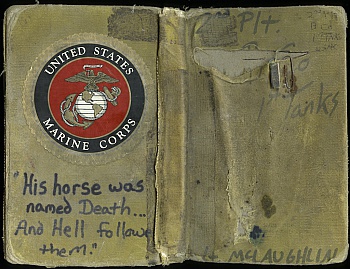 UNITED STATES
MARINE CORPS
"His horse was
named Death...
And Hell followe
them."
Plt.
Co
Tanks
MCLAUGHLIN